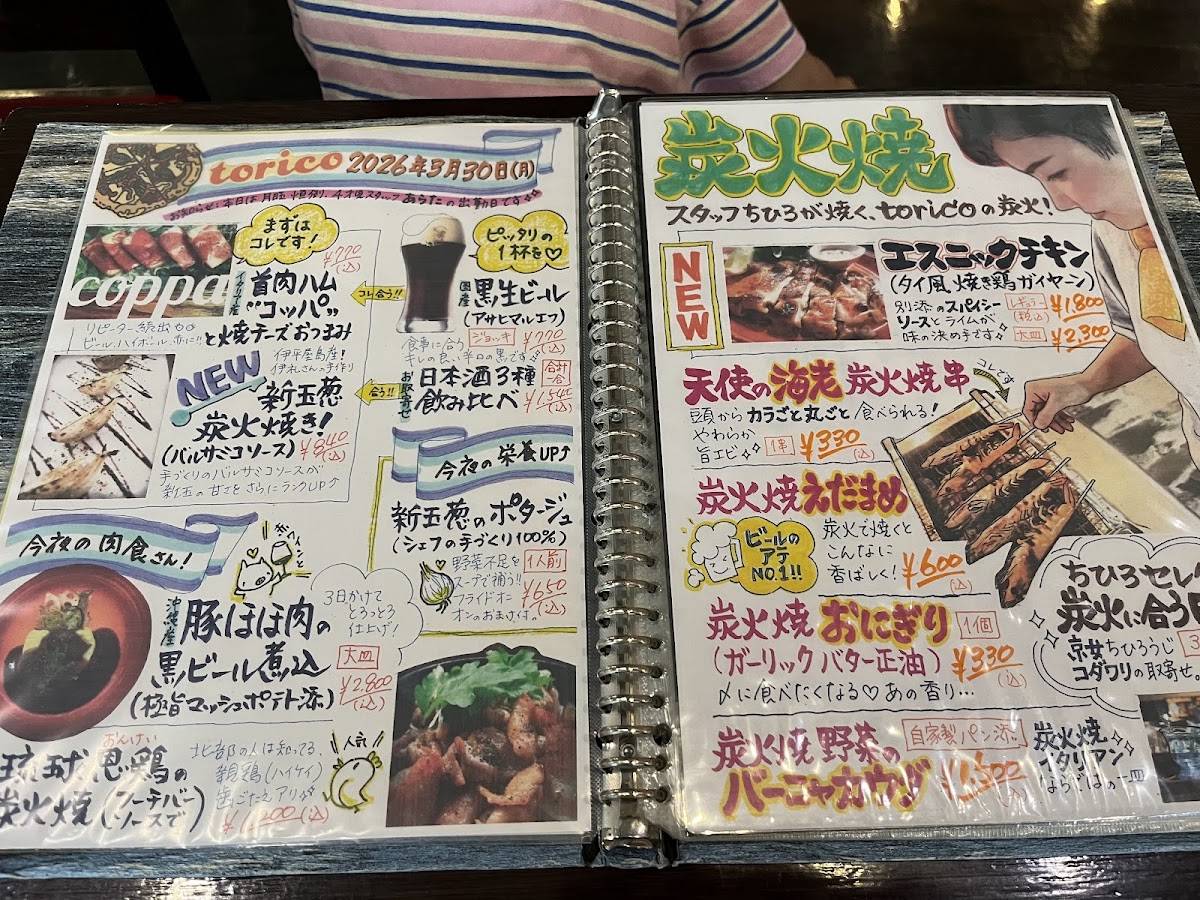 torico 2026年3月30日(月)
まずはコレです!
¥770(込)
coppa
イタリア産
首肉ハム
"コッパ"
と焼チーズおつまみ
リピーター続出
ビール、ハイボール、赤に!!
コレ合う!!
ピッタリの
1杯を♡
国産
黒生ビール
(アサヒマルエフ)
食事に合う
キレの良い辛口の黒です
ジョッキ
¥770(込)
NEW
伊平屋島産!
伊礼さんの手作り
新玉葱
炭火焼き!
(バルサミコソース)
¥840(込)
手づくりのバルサミコソースが
新玉の甘さをさらにランクUP↑
合う!!
お取寄せ
日本酒3種
飲み比べ
合計1合
¥1,540(込)
今夜の栄養UP↑
新玉葱のポタージュ
(シェフの手づくり100%)
野菜不足を
スープで補う!!
フライドオニ
オンのおまけ付。
1人前
¥650(込)
今夜の肉食さん!
沖縄産
豚ほほ肉の
黒ビール煮込
(極旨マッシュポテト添)
3日かけて
とろっとろ
仕上げ!
大皿
¥2,800(込)
琉球恩鶏の
おんけい
炭火焼(フーチバーソースで)
北部の人は知ってる、
親鶏(ハイケイ)
歯ごたえアリ
人気
炭火焼
スタッフちひろが焼く、toricoの炭火!
NEW
エスニックチキン
(タイ風 焼き鶏ガイヤーン)
別添のスパイシー
ソースとライムが
味の決め手です
レギュラー(税込)
¥1,800
大皿
¥2,300
天使の海老 炭火焼串
コレです
頭からカラごと丸ごと食べられる!
やわらか
旨エビ
1串
¥330(込)
炭火焼えだまめ
ビールの
アテ
NO.1!!
炭火で焼くと
こんなに
香ばしく!
¥600(込)
炭火焼 おにぎり
1個
(ガーリックバター正油)
¥330(込)
〆に食べたくなる♡あの香り…
炭火焼 野菜の
バーニャカウダ
自家製パン添
炭火焼
イタリアン
ならではの一皿
ちひろセレ
炭火に合う
京女ちひろうじ
コダワリの取寄せ